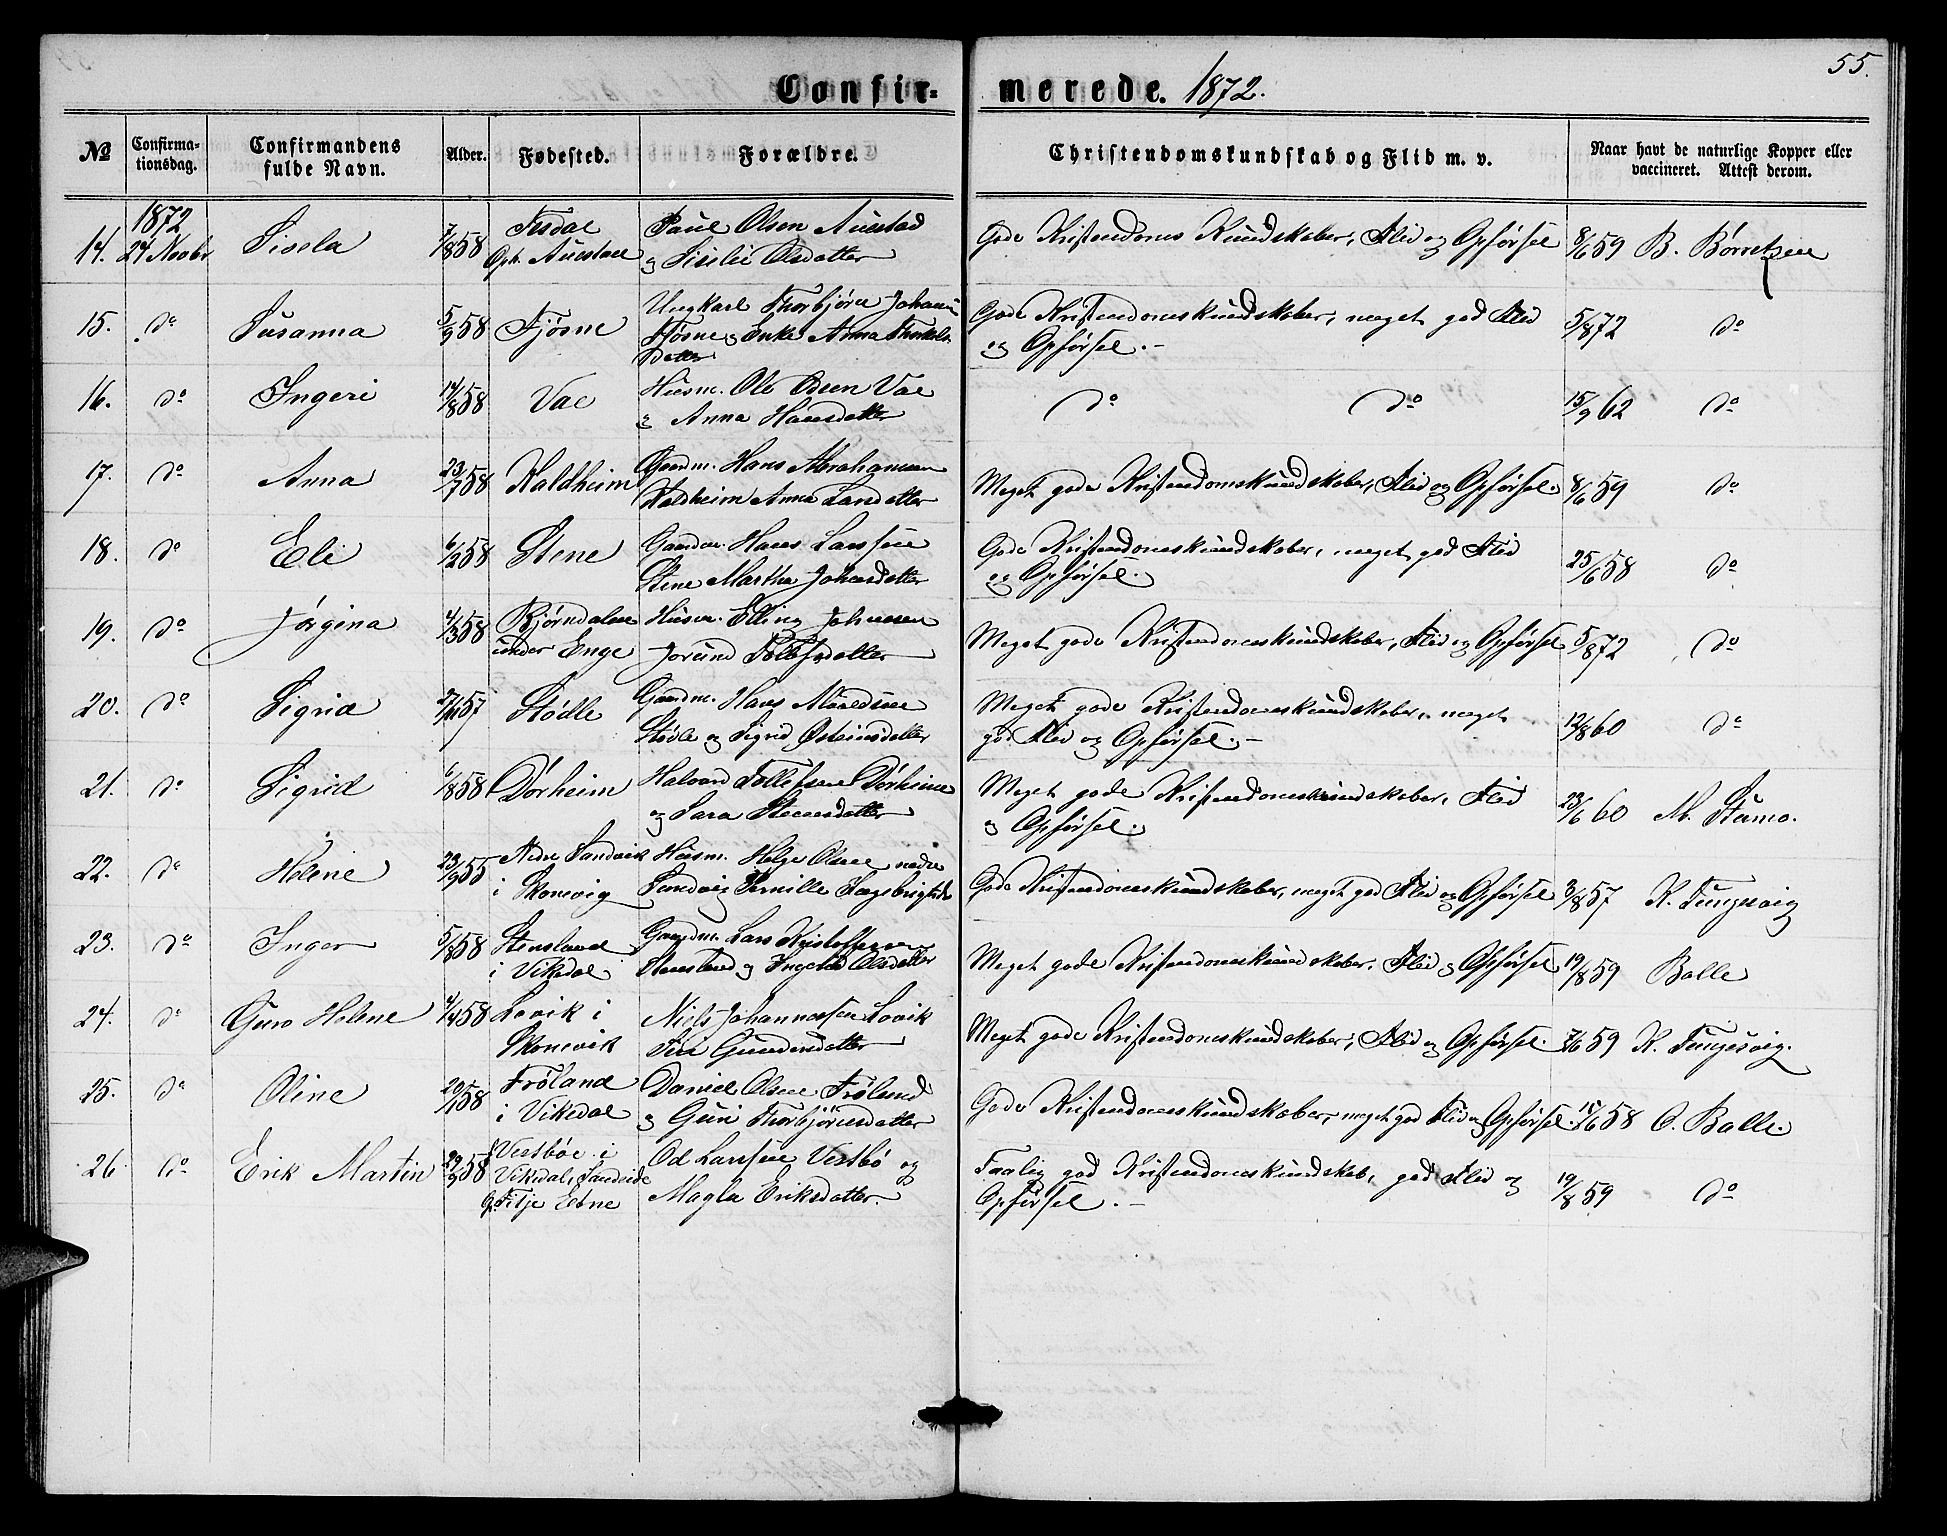 55.
Confirmerede. 1872.
№ Confirmationsdag. Confirmandens fulde Navn. Alder. Fødested. Forældre. Christendomskundskab og Flid m. v. Naar havt de naturlige Kopper eller vaccineret. Attest derom.
1872
14. 24 Novbr Sissela 7/8 58 Auestad Paul Olsen Auestad
og Siselie Olsdatter Gode Kristendoms Kundskaber, Flid og Opførsel 8/6 59 B. Børretzen
15. do Susanna 5/9 58 Fjøsne Ungkarl Thorbjørn
Fjøsne og Enke Anna Thorkels
datter Gode Kristendomskundskaber, meget god Flid
og Opførsel.- 5/8 72 do
16. do Ingeri 14/8 58 Vae Husm. Ole Vae
og Anna Hansdatter do do 15/9 62 do
17. do Anna 23/7 58 Haldheim Gaardm. Hans Abrahamsen
Haldheim Anna Larsdatter Meget gode Kristendomskundskaber, Flid og Opførsel. 8/6 59 do
18. do Eli 6/2 58 Stene Gaardm. Hans Larssen
Stene Martha Johansdatter Gode Kristendomskundskaber, meget god Flid
og Opførsel. 25/6 58 do
19. do Jørgina 4/3 58 Bjørndalen
under Enge Husm. Elling Johnsen
Jorund Tollefsdatter Meget gode Kristendomskundskaber, Flid og Opførsel 5/8 72 do
20. do Sigrid 27/11 57 Stødle Gaardm. Hans
Stødle og Sigrid Østeinsdatter Meget gode Kristendomskundskaber, meget
god Flid og Opførsel.- 12/8 60 do
21. do Sigrid 6/8 58 Dørheim Halvor Tollefsen Dørheim
og Sara Steensdatter Meget gode Kristendomskundskaber, Flid
og Opførsel. 23/6 60 M. Stumo.
22. do Helene 23/9 55 Nedre Sandvik
i Skonevig Husm. Helge Olsen nedre
Sandvig Pernille Gode Kristendomskundskaber, meget god Flid og Opførsel 3/8 57 K. Tungesvig
23. do Inger 5/8 58 Stensland
i Vikedal Gaardm. Lars Kristoffersen
Stensland og Ingebor Olsdatter Meget gode Kristendomskundskaber, Flid og Opførsel 19/8 59 Balle
24. do Guro Helene 4/4 58 Lovik i
Skonevik Niels Johannessen Lovik
Siri Gundersdatter Meget gode Kristendomskundskaber, Flid og Opførsel. 7/6 59 K. Tungesvig.
25. do Oline 20/1 58 Frøland
i Vikedal Daniel Olsen Frøland
og Guri Thorbjørnsdatter Gode Kristendomskundskaber, meget god Flid og Opførsel. 15/6 58 O. Balle.
26 do Erik Martin 29/9 58 Vestbøe i
Vikedal, Sandeide
Fitje Od Larssen Vestbø og
Magla Eriksdatter. Taalig god Kristendomskundskab, god Flid og
Opførsel.- 19/8 59 do